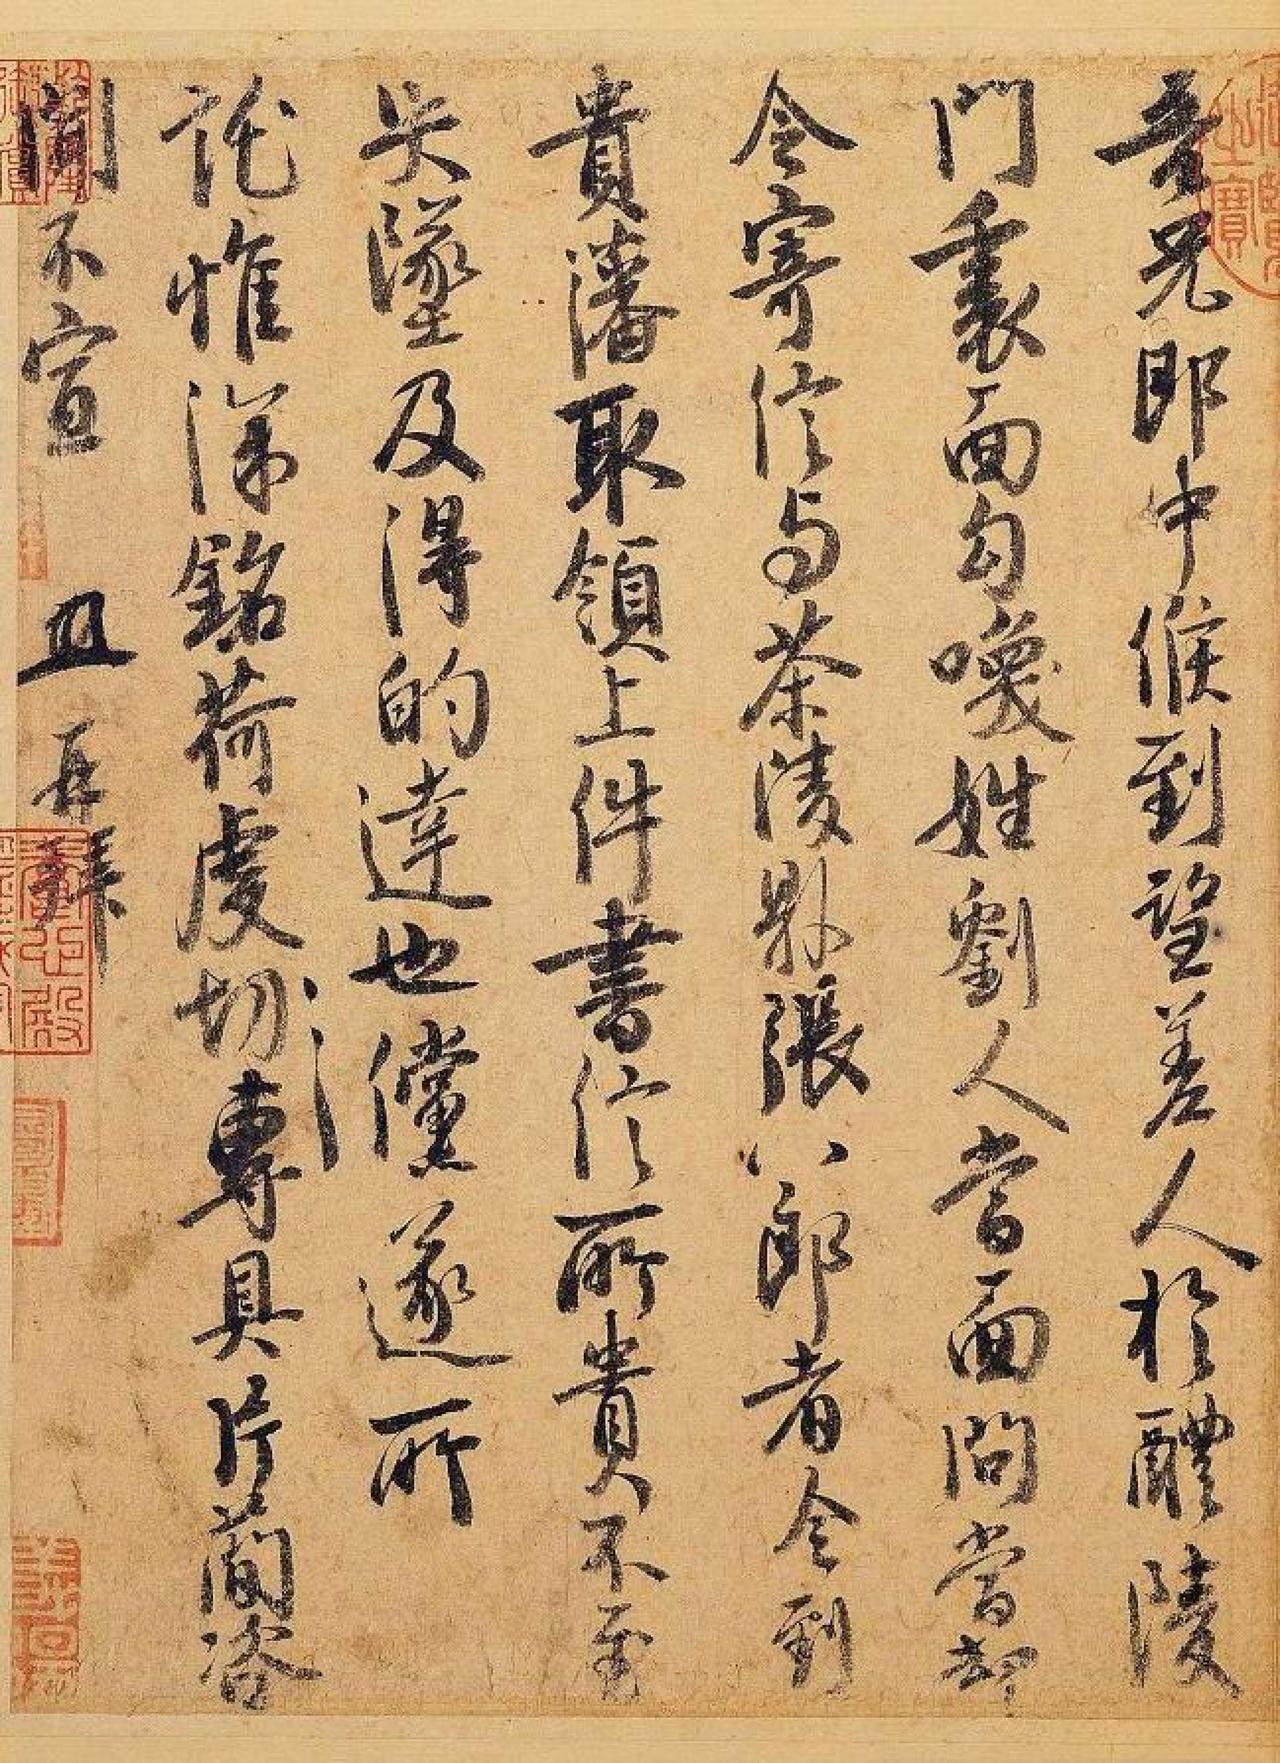 吾兄郎中候到望差人於醴陵
門裏面勾喚姓劉人當面問當却
令寄信与茶陵縣張八郎者令到
貴藩取領上件書信所貴不至
失墜及得的達也儻遂所
託惟深銘荷虔切專具片簡咨
聞不宣 且再拜